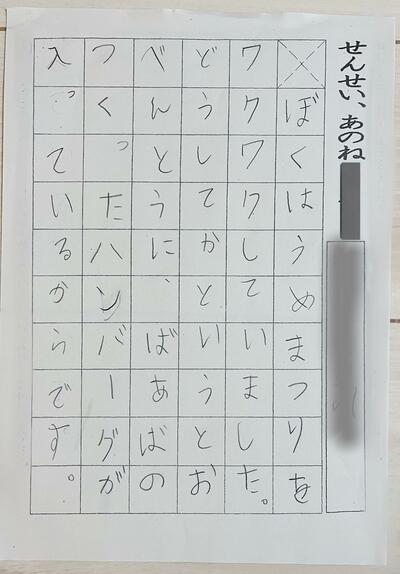 せんせい、あのね
ぼくはうめまつりを
ワクワクしていました。
どうしてかというとお
べんとうに、ばあばの
つくったハンバーグが
入っているからです。